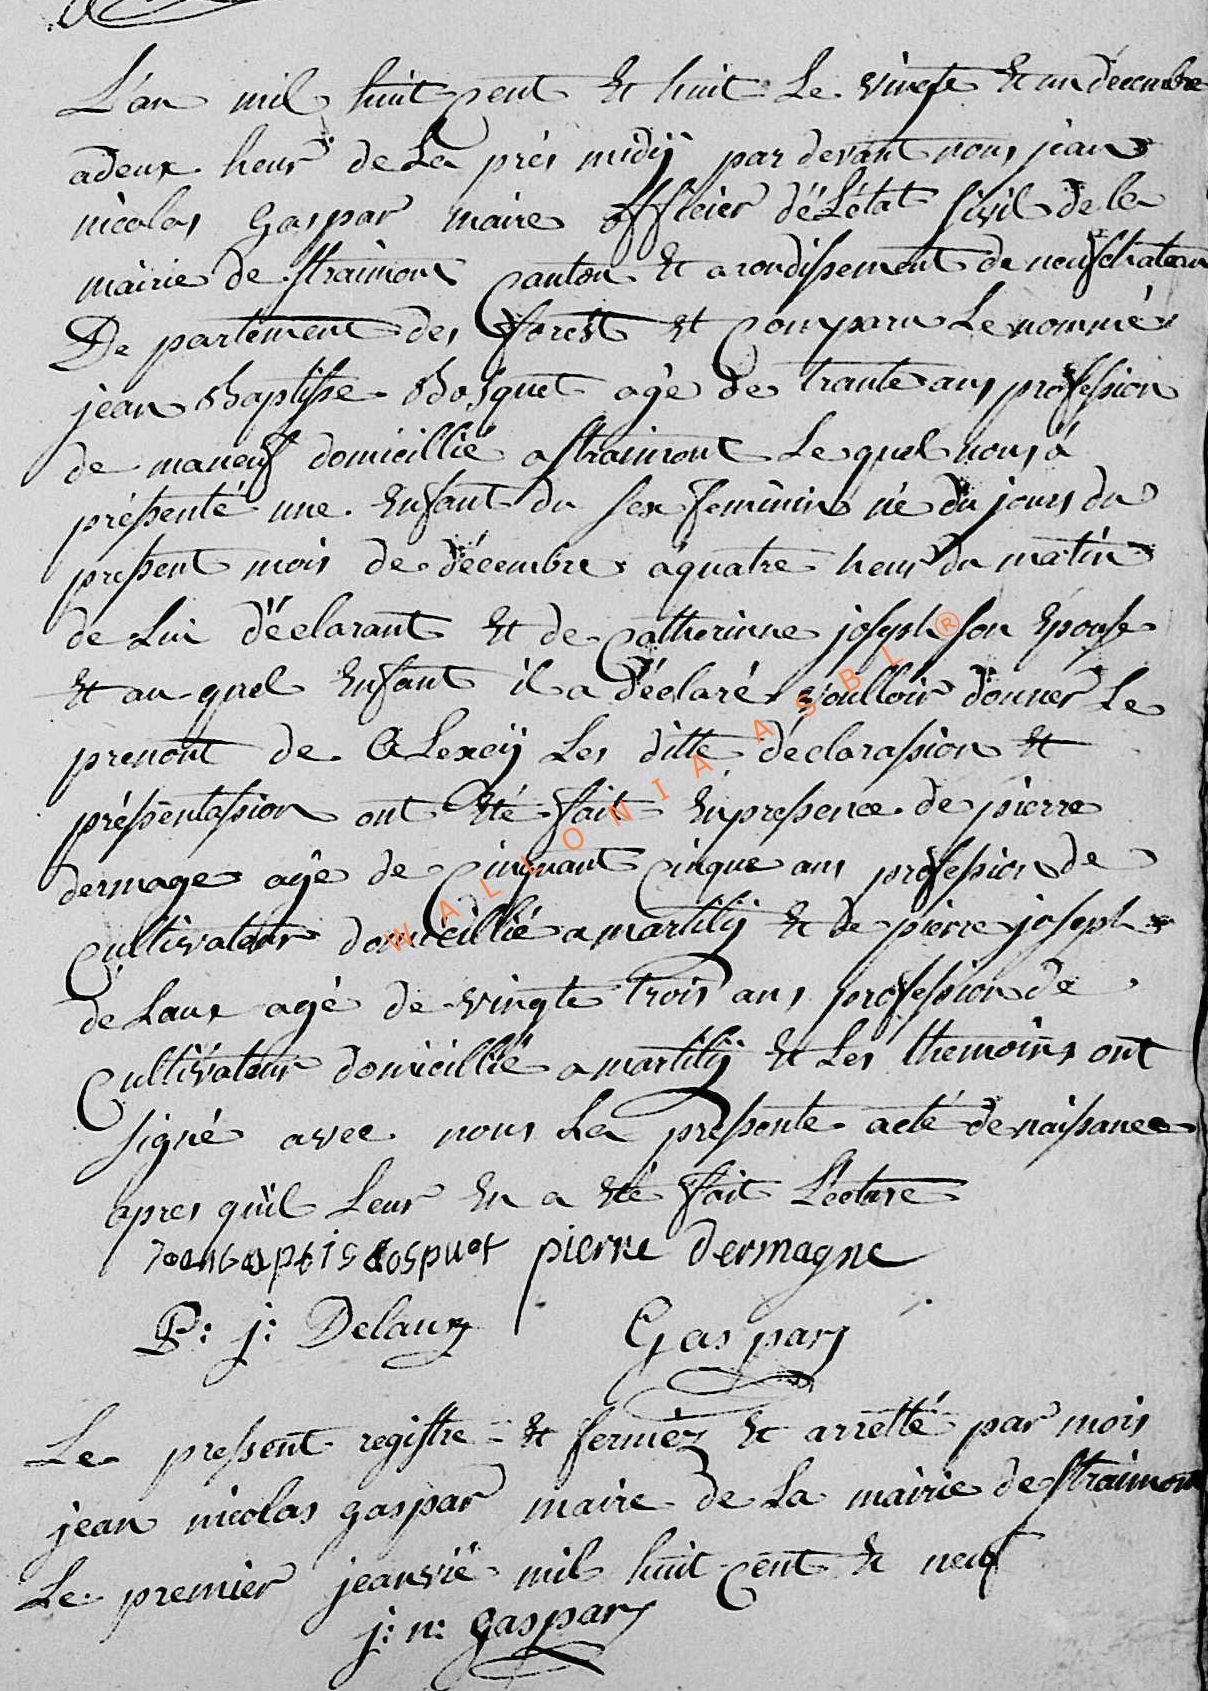 L'an mil huit cent et huit Le vingte et un décembre
a deux heur de La prés midij par devant nous jean
nicolas Gaspar maire officier dé L'état sivil de la
mairie de straimont canton et arondissement de neufchateau
De partement des forest et comparu Le nommé
jean Baptiste Bosquet agé de trante ans profession
de maneuf domicillié a straimont Le quel nous á
présenté une enfant du sex feminin né du jours du
present mois de décembre á quatre heur du matin
de Lui déclarant et de catherinne joseph son épouse
et au quel enfant il a déclaré voulloir donner Le
prenont de Alexcij Les ditte déclarasion et
présentasion ont été fait en presence de pierre
dermage agé de cinquant cinque ans profession de
cultivateur domicillié a martilij et de pierre joseph
de Laux agé de vingte trois ans profession de
cultivateur domicillié a martilij et Les themoins ont
signé avec nous La presente acté de naisance
apres quil Leur en a été fait Lecture
pierre dermagne
P: j: Delaux Gaspar
Le present registre et ferméz et arretté par mois
jean nicolas gaspar maire de La mairie de straimont
Le premier jeanvié mil huit cent et neuf
j: n: gaspar
WALLONIA ASBL ®